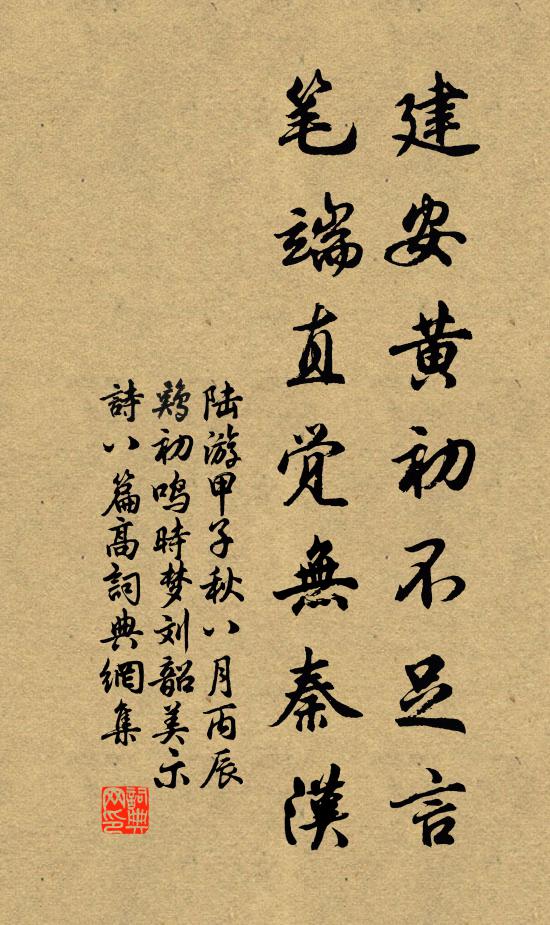 建安黄初不足言
笔端直觉無秦漢
陆游甲子秋八月丙辰
鸡初鸣時梦刘韶美示
詩八篇高詞典網集
詞典網印